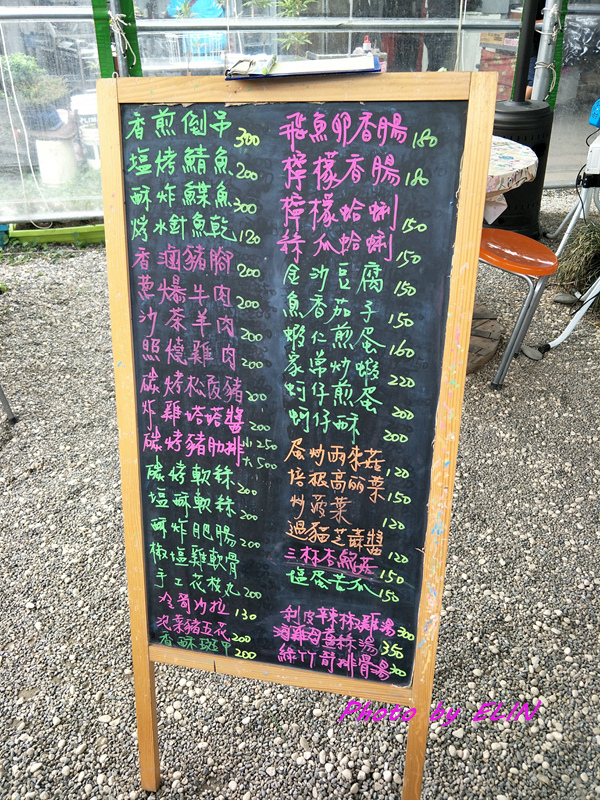 香煎倒吊 300
塩烤鯖魚 200
酥炸鰈魚 300
烤水針魚乾 120
香滷豬腳 200
蔥爆牛肉 200
沙茶羊肉 200
照燒雞肉 200
碳烤松阪豬 200
炸雞塔塔醬 200
碳烤豬肋排 小250 大500
碳烤軟絲 200
塩酥軟絲 200
酥炸肥腸 200
椒塩雞軟骨
手工花枝丸 200
冷筍沙拉 130
泡菜豬五花 200
香酥斑甲 200
飛魚卵香腸 180
檸檬香腸 180
檸檬蛤蜊 150
絲瓜蛤蜊 150
金沙豆腐 150
魚香茄子 150
蝦仁煎蛋 160
家常炒蝦 220
蚵仔煎蛋 200
蚵仔酥 200
蛋炒雨來菇 120
培根高麗菜 150
炒菠菜 120
過貓芝蔴醬 120
三杯杏鮑菇 150
塩蛋苦瓜 150
剝皮辣椒雞湯 300
湯 350
綠竹筍排骨湯 300
Photo by ELIN